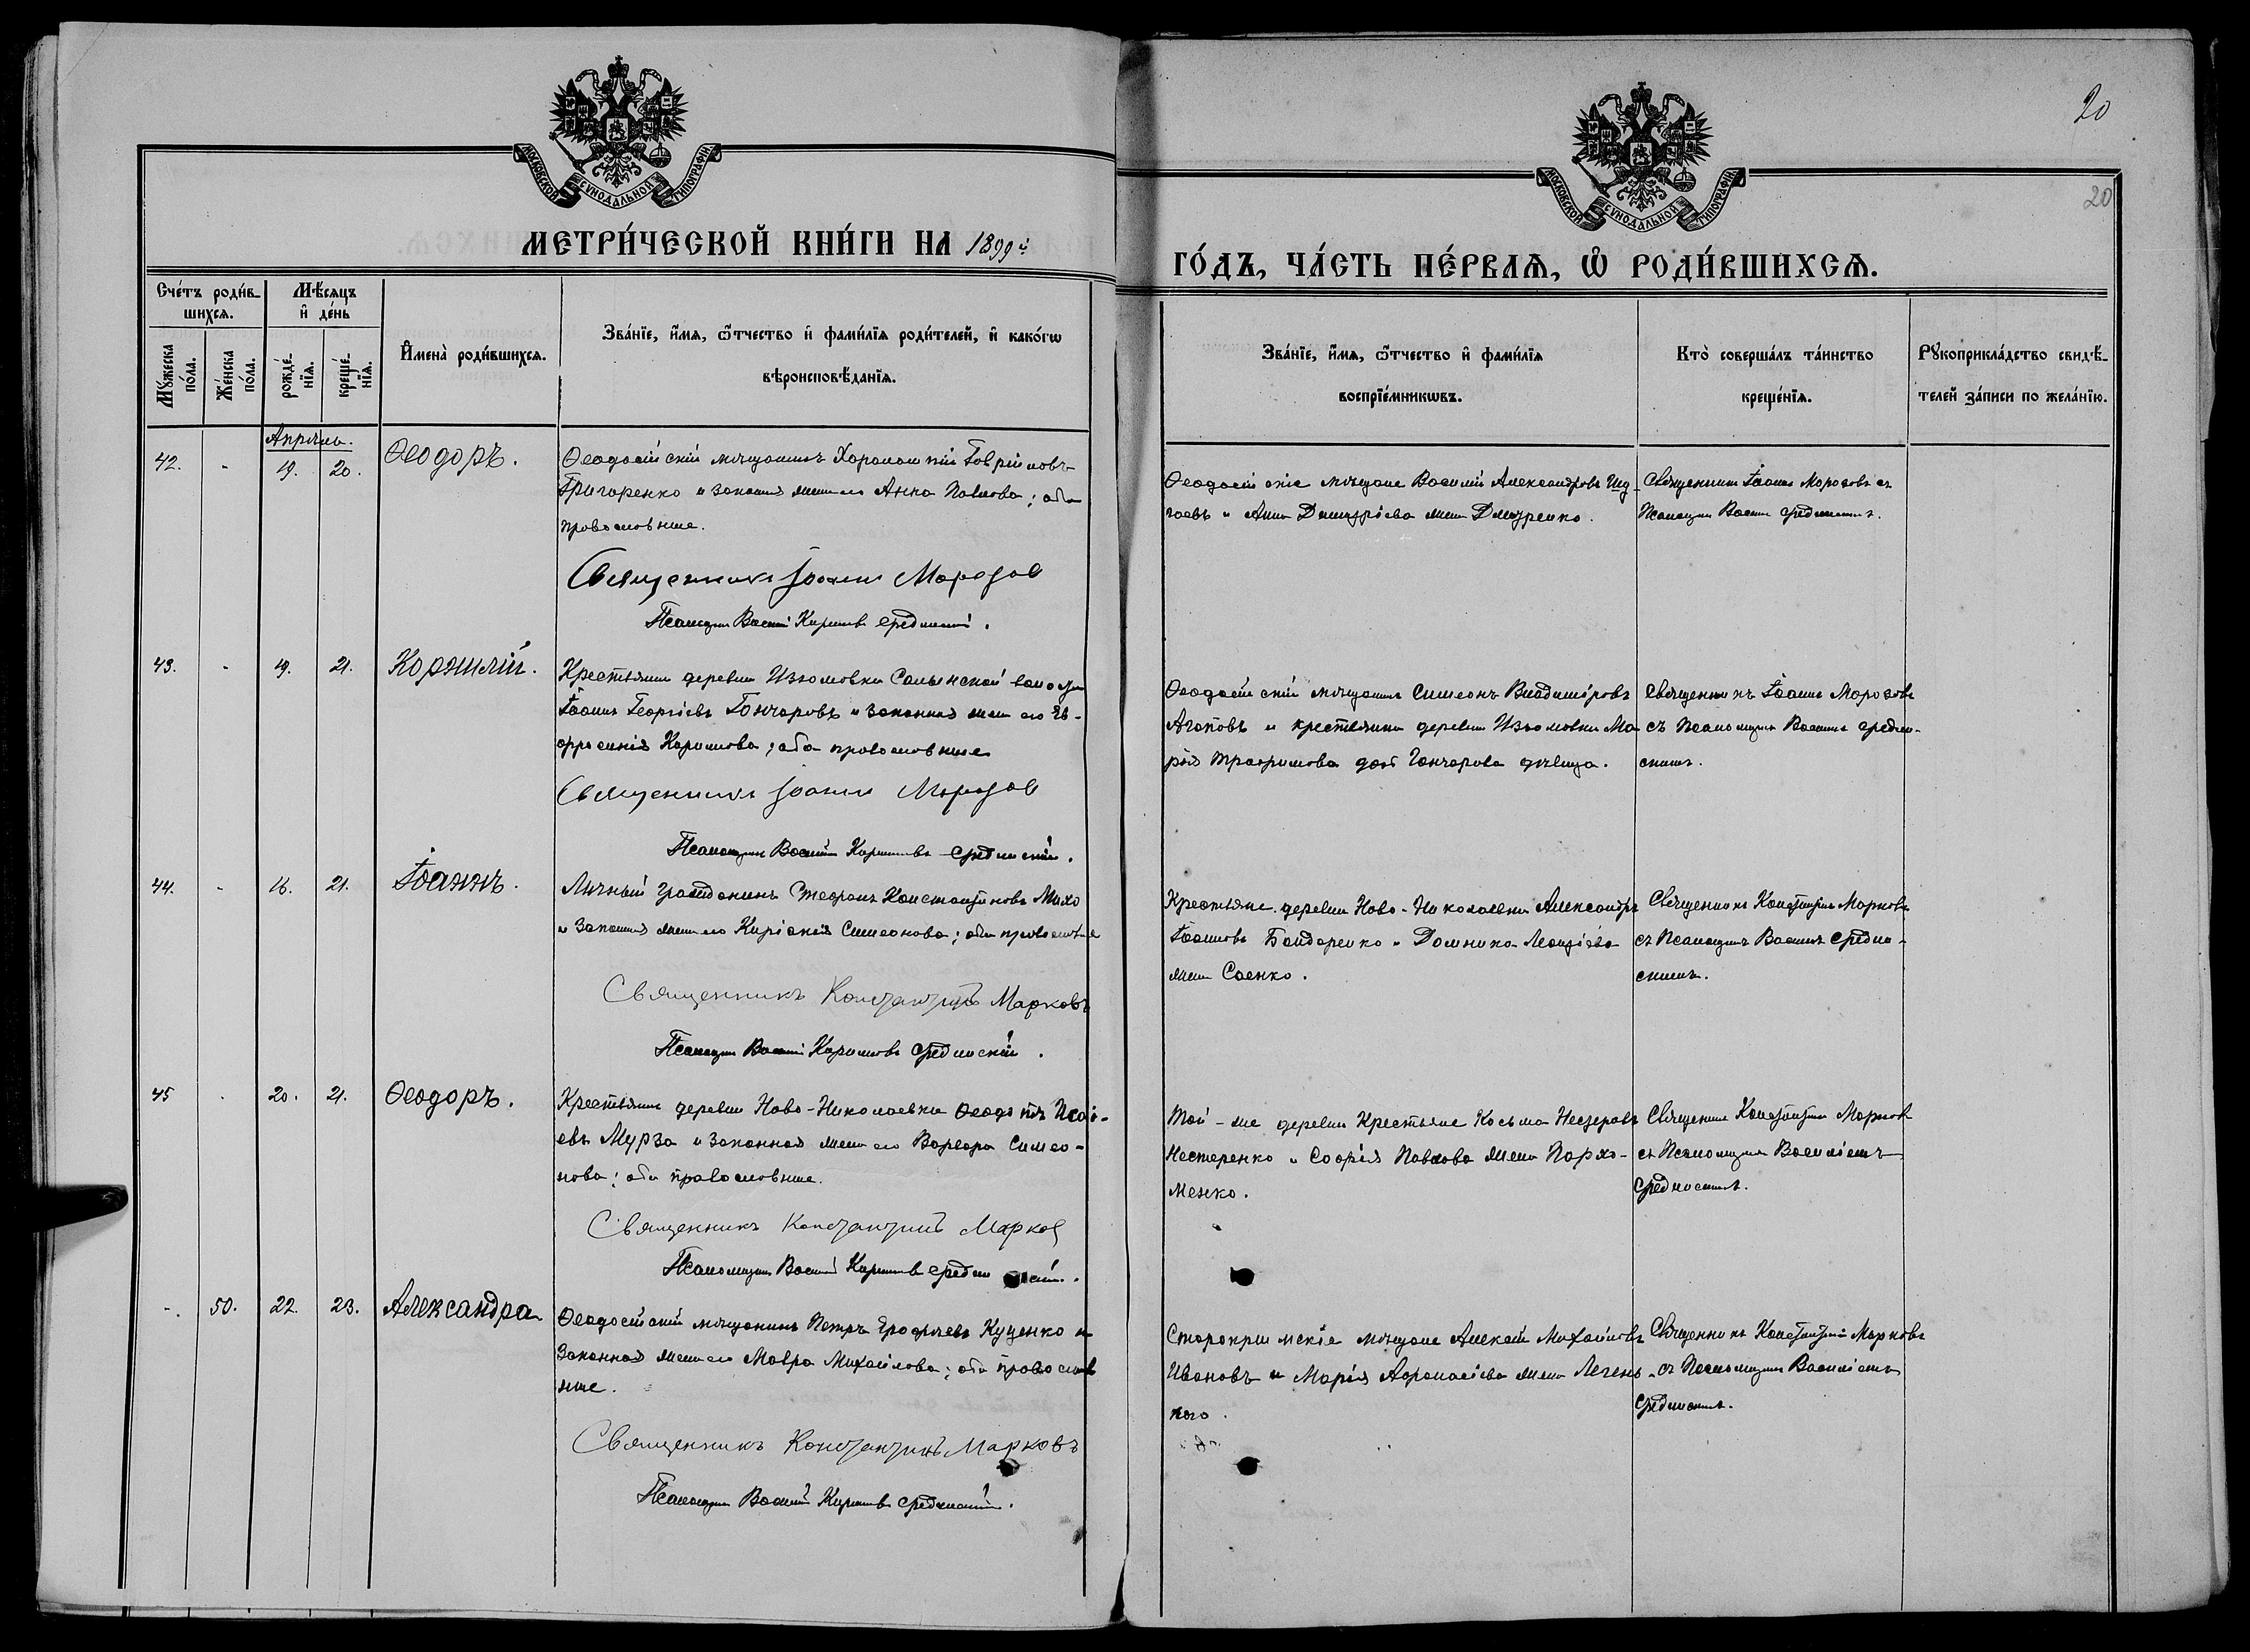 20
20
МОСКОВСКОЙ СУНОДАЛЬНОЙ ТИПОГРАФІИ
МОСКОВСКОЙ СУНОДАЛЬНОЙ ТИПОГРАФІИ
МЕТРИ́ЧЕСКОЙ КНИ́ГИ НА 1899й
ГО́ДЪ, ЧА́СТЬ ПЕ́РВАЯ, Ѡ РОДИ́ВШИХСЯ.
Сче́тъ роди́в-
шихся.
Мѣ́сяцъ
и де́нь
Му́жеска
по́ла.
Же́нска
по́ла.
рожде́-
нїя.
креще́-
нїя.
И҆мена̀ роди́вшихся.
Зва́нїе, и҆́мя, ѻ҆́тчество и҆ фами́лїя роди́телей, и҆ како́гѡ
вѣроисповѣ́данїя.
Зва́нїе, и҆́мя, ѻ҆́тчество и҆ фами́лїя
воспрїе́мникѡвъ.
Кто̀ соверша́лъ та́инство
креще́нїя.
Рꙋкоприкла́дство свидѣ́-
телей за́писи по жела́нїю.
Апрѣль.
42. - 19. 20. Ѳеодоръ.
Ѳеодосійскій мѣщанинъ
Григоренко и законная жена его Анна Павлова; оба
православные.
Священникъ Іоаннъ Морозов
Псаломщикъ Василій Кириловъ Среднискій.
Ѳеодосійскіе мѣщане Василій Александровъ
и Анна Димитріева жена Дмитренко.
Священникъ Іоаннъ Морозовъ съ
Псаломщик. Васил. Среднискимъ.
43. - 19. 21. Корнилій.
Крестьянинъ деревни Изюмовки Салынской волости
Іоаннъ Георгіевъ Гончаровъ и законная жена его Ев-
фросинія Кирилова; оба православные
Священникъ Іоаннъ Морозов
Псаломщикъ Василій Кириловъ Среднискій.
Ѳеодосійскій мѣщанинъ Симеонъ Владиміровъ
Агаповъ и крестьянка деревни Изюмовки Ма
рія Трофимова дочь Гончарова дѣвица.
Священникъ Іоаннъ Морозовъ
съ Псаломщик. Василіемъ Средни-
скимъ.
44. - 16. 21. Іоаннъ.
Личный гражданинъ Стефанъ Константиновъ Михо
и законная жена его Киріакія Симеонова; оба православные
Священникъ Константинъ Марковъ
Псаломщикъ Василій Кириловъ Среднискій.
Крестьяне деревни Ново-Николаевки Александръ
Іоанновъ Бондаренко и Домника Леонтіева
жена Саенко.
Священникъ Константинъ Марковъ
съ Псаломщик. Василіемъ Средни-
скимъ.
45 - 20. 21. Ѳеодоръ.
Крестьянинъ деревни Ново-Николаевки Ѳеодотъ Исаі-
евъ Мурза и законная жена его Варвара Симео-
нова; оба православные.
Священникъ Константинъ Марков
Псаломщикъ Василій Кириловъ Среднискій.
Той-же деревни Крестьяне Косьма Несторовъ
Нестеренко и Софія Павлова жена Пархо-
менко.
Священникъ Константинъ Марковъ
съ Псаломщик. Василіемъ
Среднискимъ.
- 50. 22. 23. Александра
Ѳеодосійскій мѣщанинъ Петръ Ерофѣевъ Куценко и
законная жена его Мавра Михайлова; оба православ
ные.
Священникъ Константинъ Марковъ
Псаломщикъ Василій Кириловъ Среднискій.
Старокрымскіе мѣщане Алексѣй Михайловъ
Ивановъ и Марія Афанасіева жена
Священникъ Константинъ Марковъ
съ Псаломщик. Василіемъ
Среднискимъ.